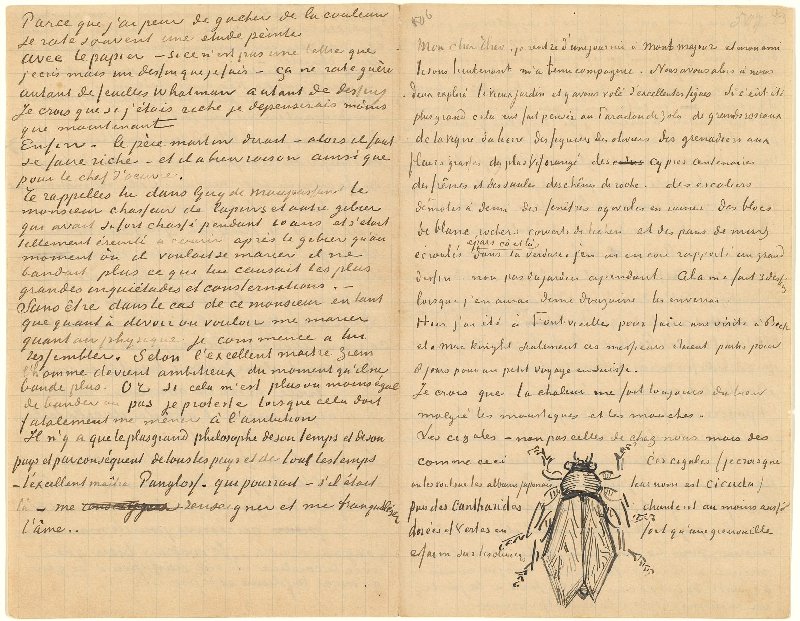 Parce que j'ai peur de gacher de la couleur
je rate souvent une etude peinte
avec le papier – si ce n'est pas une lettre que
j'ecris mais un dessin que je fais – ça ne rate guère
autant de feuilles Whatman autant de dessins
Je crois que si j'étais riche je depenserais moins
que maintenant
Enfin – le père martin dirait – alors il faut
se faire riche – et il a bien raison ainsi que
pour le chef d'oeuvre.
Te rappelles tu dans Guy de Maupassant le
monsieur chasseur de lapins et autre gibier
qui avait si fort chassé pendant 10 ans et s'etait
tellement éreinté à courir après le gibier qu'au
moment où il voulait se marier il ne
bandait plus ce que lui causait les plus
grandes inquiétudes et consternations. –
Sans être dans le cas de ce monsieur en tant
que quant à devoir ou vouloir me marier
quant au physique je commence à lui
ressembler. Selon l'excellent maitre Ziem
l'homme devient ambitieux du moment qu'il ne
bande plus. Or si cela m'est plus ou moins égal
de bander ou pas je proteste lorsque cela doit
fatalement me mener à l'ambition
Il n'y a que le plus grand philosophe de son temps et de son
pays et par conséquent de tous les pays et de tous les temps
– l'excellent maître Pangloss – qui pourrait – s'il était
là – me renseigner et me tranquiliser
l'âme..
506
Mon cher Theo, je rentre d'une journée à Mont major et mon ami
le sous lieutenant m'a tenu compagnie. Nous avons alors à nous
deux exploré le vieux jardin et y avons volé d'excellentes figues. Si c'eut été
plus grand cela eut fait penser au Paradou de Zola de grands roseaux
de la vigne du lierre des figuiers des oliviers des grenadiers aux
fleurs grasses du plus vif orangé des cyprès centenaires
des frênes et des saules des chênes de roche. des escaliers
démolis à demi des fenêtres ogivales en ruines des blocs
de blanc rocher couverts de lichen et des pans de murs
écroulés epars ca et là dans la verdure j'en ai encore rapporté un grand
dessin non pas du jardin cependant. Cela me fait 3 dessins
lorsque j'en aurai demie douzaine les enverrai.
Hier j'ai été à Fontvieilles pour faire une visite à Bock
et à Mac Knight seulement ces messieurs étaient partis pour
8 jours pour un petit voyage en Suisse.
Je crois que la chaleur me fait toujours du bien
malgré les moustiques et les mouches.
Les cigales – non pas celles de chez nous mais des
comme ceci
on les voit sur les albums japonais
pas des Cantharides
dorées et Vertes en
essaim sur les oliviers
Ces cigales (je crois que
leur nom est cicada)
chantent au moins aussi
fort qu'une grenouille